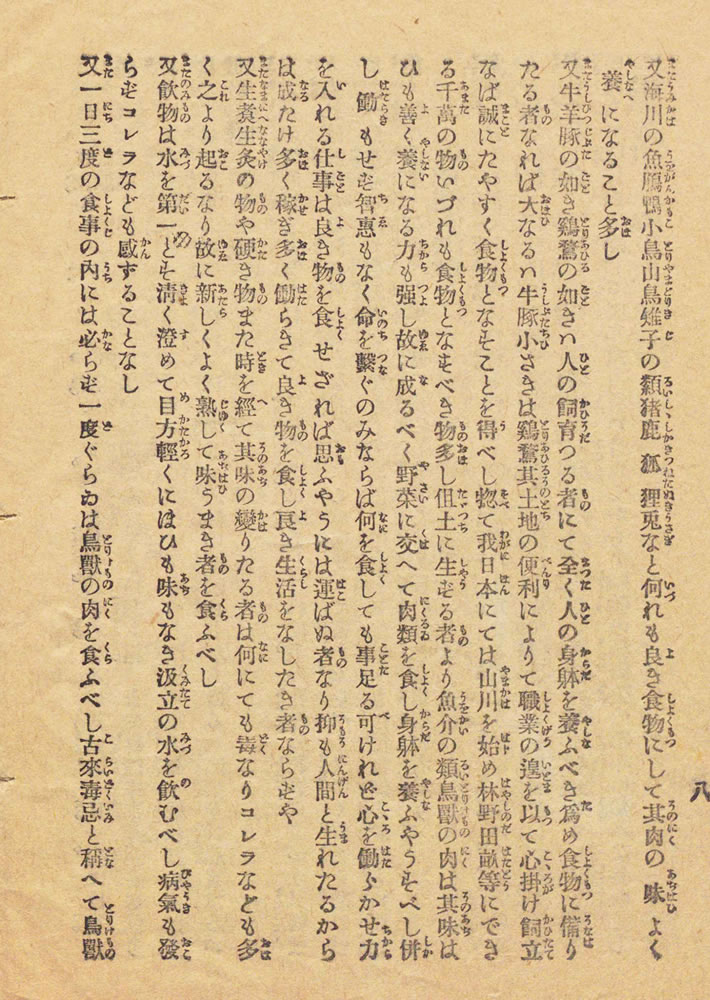 又海川の魚鴈鴨小鳥山鳥雉子の類猪鹿狐狸兎なと何れも良き食物にして其肉の味よく
養になること多し
又牛羊豚の如き鷄鶩の如きハ人の飼育つる者にて全く人の身躰を養ふべき爲め食物に備り
たる者なれば大なるハ牛豚小さきは鷄鶩其土地の便利によりて職業の遑を以て心掛け飼立
なば誠にたやすく食物となすことを得べし惣て我日本にては山川を始め林野田畝等にでき
る千萬の物いづれも食物となすべき物多し但土に生ずる者より魚介の類鳥獸の肉は其味は
ひも善く養になる力も强し故に成るべく野菜に交へて肉類を食し身躰を養ふやうすべし併
し働もせず智惠もなく命を繫ぐのみならば何を食しても事足る可けれど心を働らかせ力
を入れる仕事は良き物を食せざれば思ふやうには運ばぬ者なり抑も人間と生れたるから
は成たけ多く稼ぎ多く働らきて良き物を食し良き生活をなしたき者ならずや
又生煑生炙の物や硬き物また時を經て其味の變りたる者は何にても毒なりコレラなども多
く之より起るなり故に新しくよく熟して味うまき者を食ふべし
又飲物は水を第一とす淸く澄めて目方輕くにほひも味もなき汲立の水を飲むべし病氣も發
らずコレラなども感ずることなし
又一日三度の食事の內には必らず一度ぐらゐは鳥獸の肉を食ふべし古來毒忌と稱へて鳥獸
八